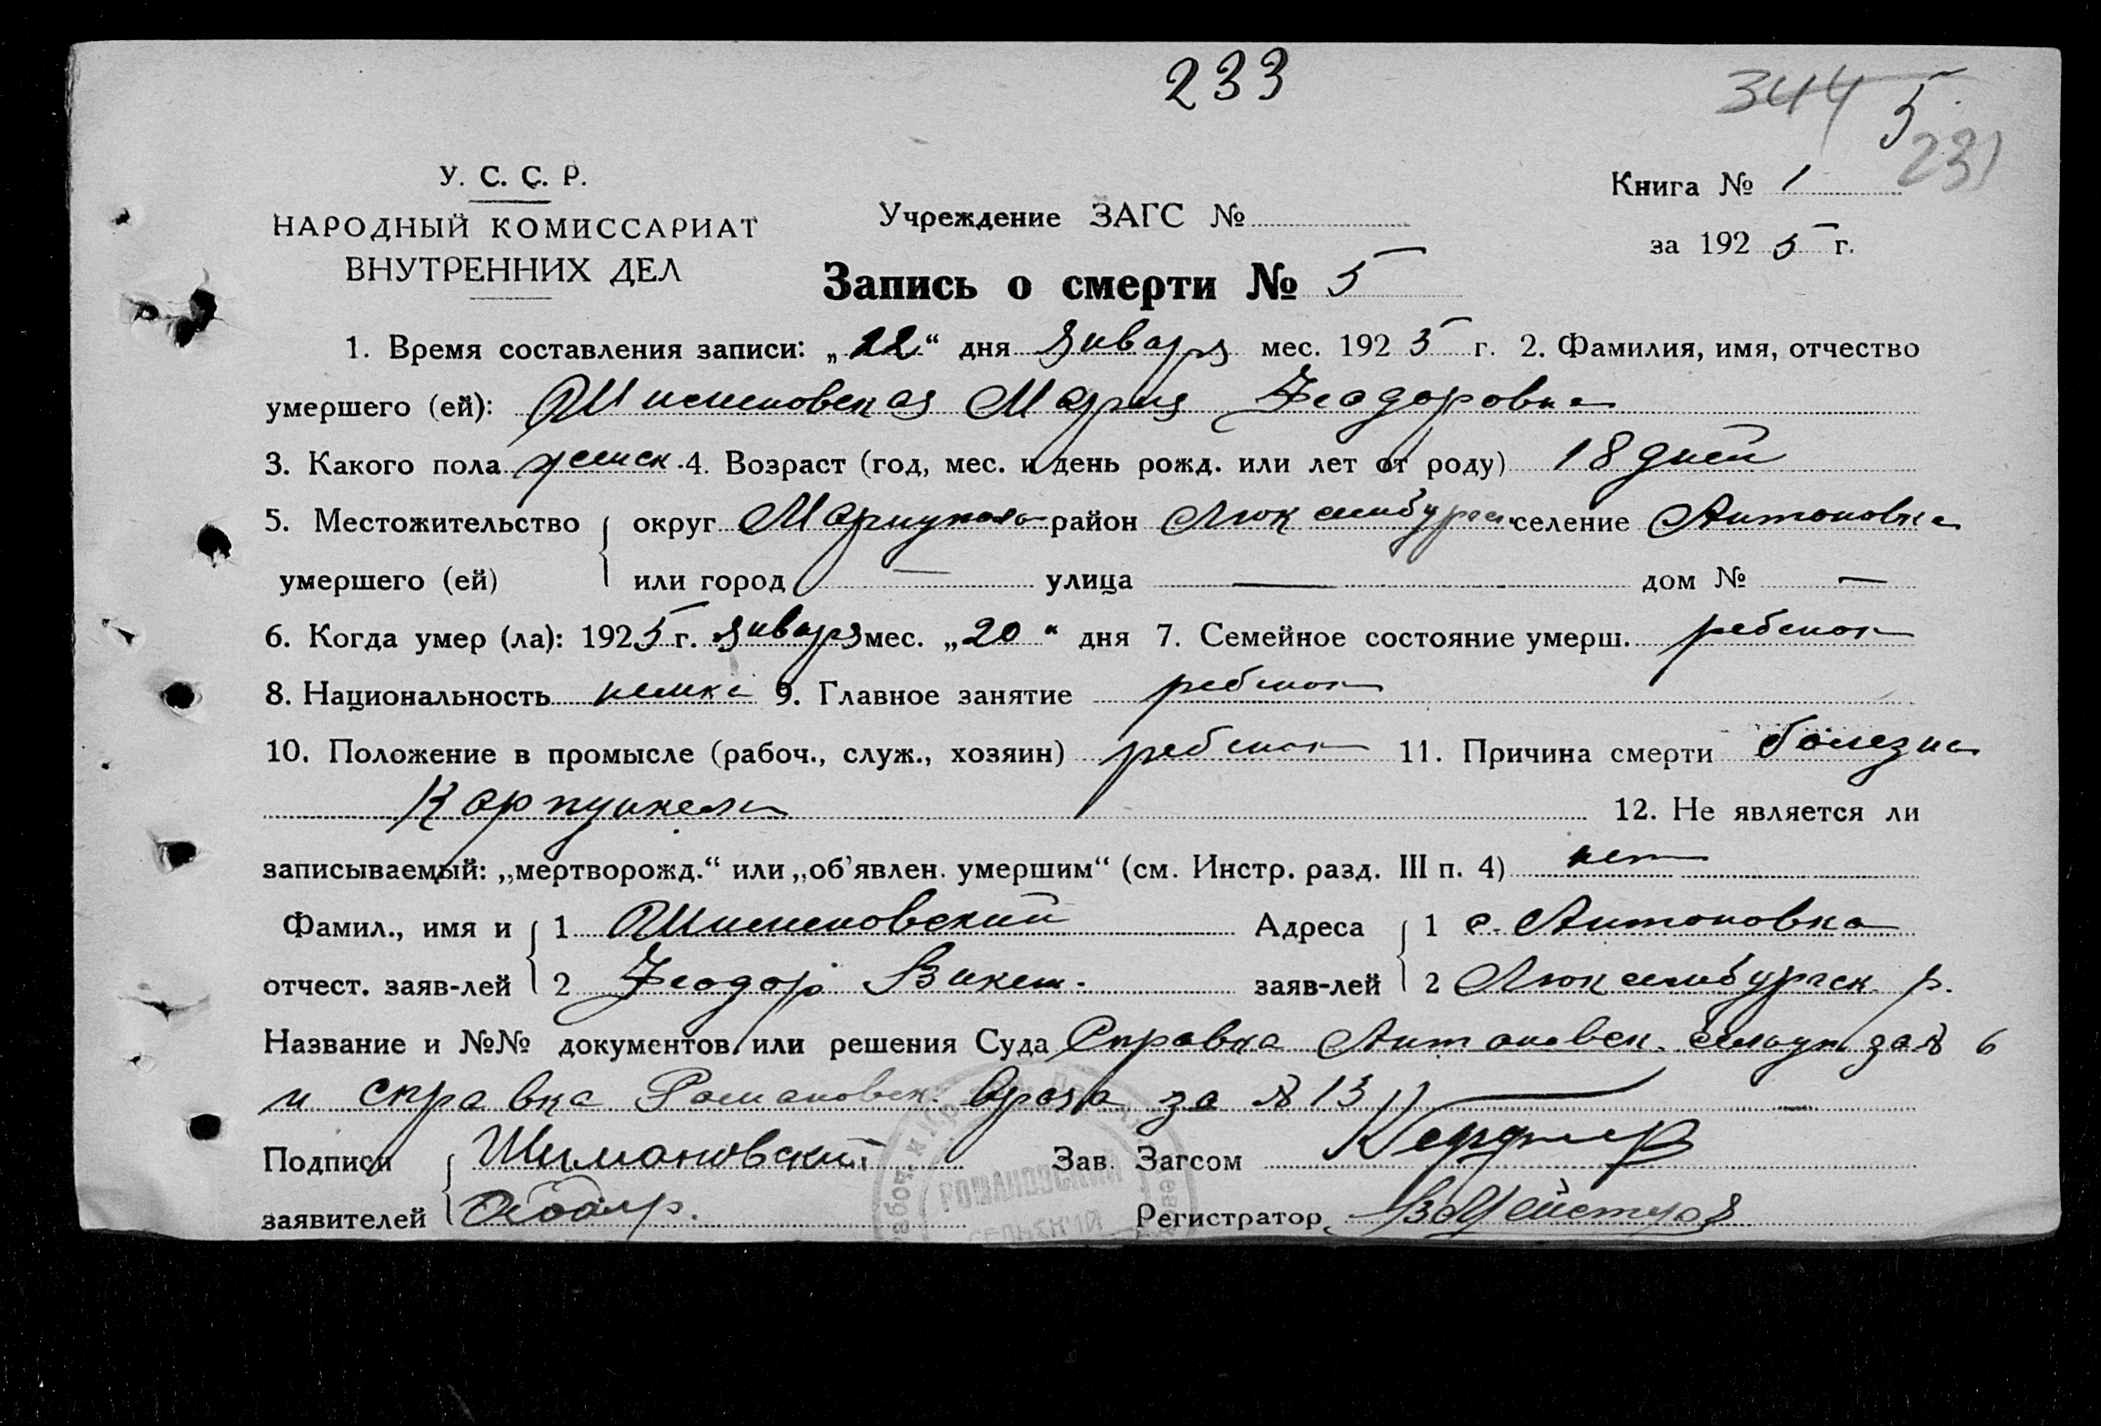 233
344 5
231
У. С. С. Р.
НАРОДНЫЙ КОМИССАРИАТ
ВНУТРЕННИХ ДЕЛ
Учреждение ЗАГС №
Книга № 1
за 1925 г.
Запись о смерти № 5
1. Время составления записи: „22“ дня Января мес. 1925 г. 2. Фамилия, имя, отчество
умершего (ей): Шимановская Мария Феодоровна
3. Какого пола женск. 4. Возраст (год, мес. и день рожд. или лет от роду) 18 дней
5. Местожительство { округ Мариупол район Люксембургск селение Антоновка
умершего (ей) или город — улица — дом № —
6. Когда умер (ла): 1925 г. Января мес. „20“ дня 7. Семейное состояние умерш. ребенок
8. Национальность немка 9. Главное занятие ребенок
10. Положение в промысле (рабоч., служ., хозяин) ребенок 11. Причина смерти болезнь
12. Не является ли
записываемый: „мертворожд.“ или „об’явлен. умершим“ (см. Инстр. разд. III п. 4) нет
Фамил., имя и { 1 Шимановский Адреса { 1 с. Антоновка
отчест. заяв-лей 2 Феодор Викент. заяв-лей 2 Люксембургск. р.
Название и №№ документов или решения Суда Справка Антоновск. за № 6
и справка Романовск. врача за № 13
Подписи { Шимановский Зав. Загсом
заявителей Регистратор
РОМАНОВСКИЙ
СЕЛЬСКИЙ